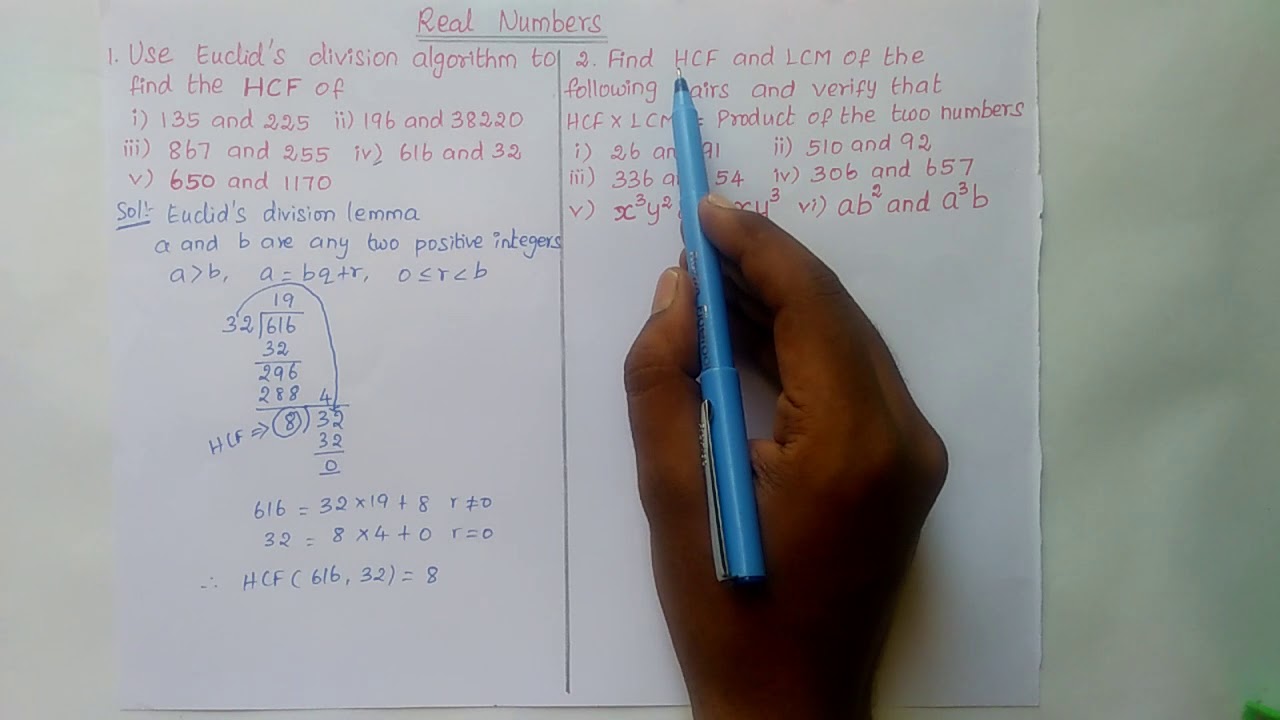 Real Numbers
1. Use Euclid's division algorithm to
find the HCF of
i) 135 and 225 ii) 196 and 38220
iii) 867 and 255 iv) 616 and 32
v) 650 and 1170
Sol:- Euclid's division lemma
a and b are any two positive integers
a>b, a = bq+r, 0 ≤ r < b
19
32 616
32
296
288 4
HCF ⇒ 8) 32
32
0
616 = 32 × 19 + 8 r ≠ 0
32 = 8 × 4 + 0 r = 0
∴ HCF( 616, 32) = 8
2. Find HCF and LCM of the
following airs and verify that
HCF X LCM = Product of the two numbers
i) 26 an 91 ii) 510 and 92
iii) 336 a 54 iv) 306 and 657
v) x³y² xy³ vi) ab² and a³b